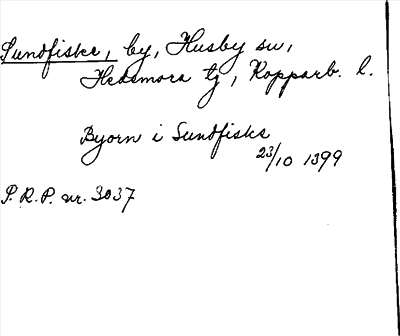 Sundfiske, by, Husby sn,
Hedemora tg, Kopparb. l.
Byorn i Sundfiske
23/10 1399
P.R.P. nr. 3037